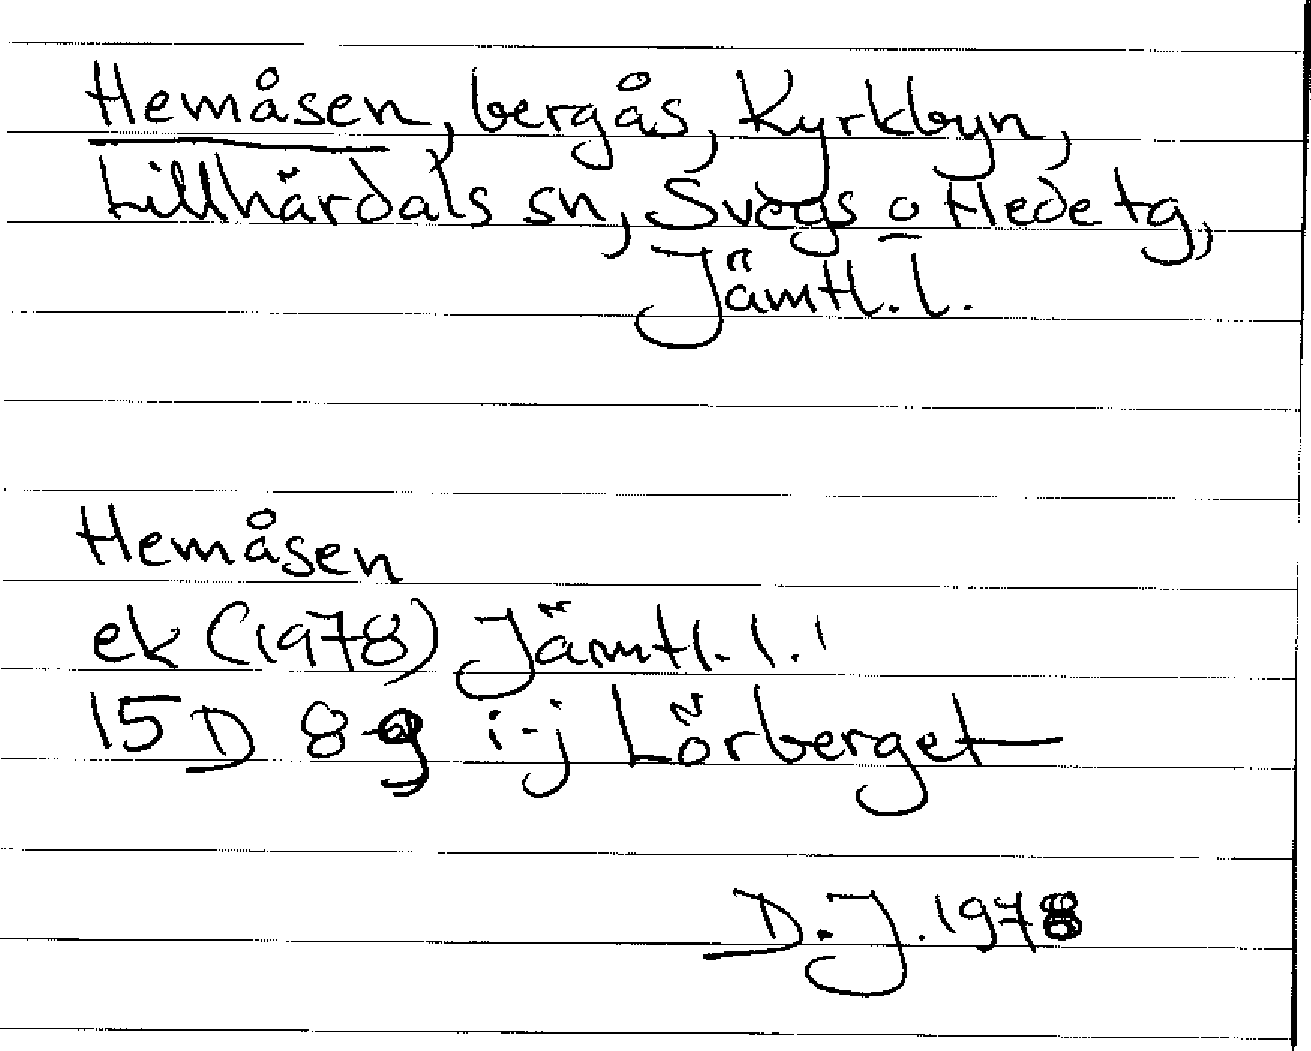 Hemåsen, bergås, Kyrkbyn,
Lillhärdals sn, Svegs o Hede tg,
Jämtl. l.
Hemåsen
ek (1978) Jämtl. l.
15 D 8-9 i-j Lörberget
D.J. 1978